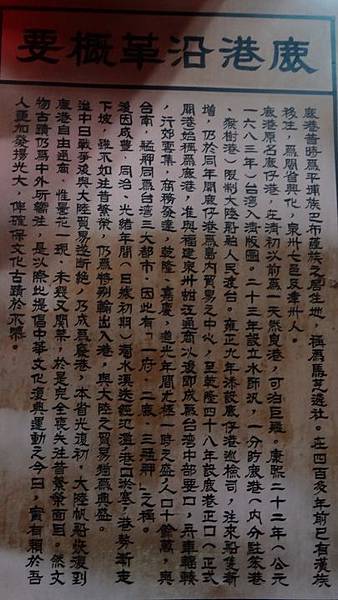 鹿港沿革概要
鹿港昔時為平埔族巴布薩族之居住地,稱為馬芝遴社。在四百多年前已有漢族
移往,為閩省興化,泉州七邑及漳州人。
鹿港原名鹿仔港,在清初以前為一天然良港,可泊巨艦。康熙二十二年(公元
一六八三年)台湾入清版圖。二十三年設立水師汛,一分防鹿港(內分駐笨港
、猴樹港)限制大陸船舶人民渡台。雍正九年添設鹿仔港巡檢司,往來船隻漸
增,仍於同年開鹿仔港為島內貿易之中心,至乾隆四十八年設鹿港正口(正式
開港始稱為鹿港,准與福建泉州蚶江通商以後即成為台湾中部要口,舟車輻輳
,行郊雲集,商務發達,乾隆、嘉慶,道光年間尤極一時之盛,人口十餘萬,與
台南,艋舺同為台湾三大都市,因此有「一府、二鹿、三艋舺」之稱。
後因咸豐,同治,光緒年間(日據初期)濁水溪迭經氾濫港口淤塞,港勢漸走
下坡,雖不如往昔繁榮,仍為特別輸出入港,與大陸之貿易猶為興盛。
迨中日戰爭後與大陸貿易遂斷絕,乃成為廢港,本省光復初,大陸帆船恢復到
鹿港自由通商,惟曇花一現,未幾又關閉,於是完全喪失往昔繁榮面目。然文
物古蹟仍為中外所矚注,是以際此提倡中華文化復興運動之今日,實有賴於吾
人更加發揚光大,俾確保文化古蹟於永